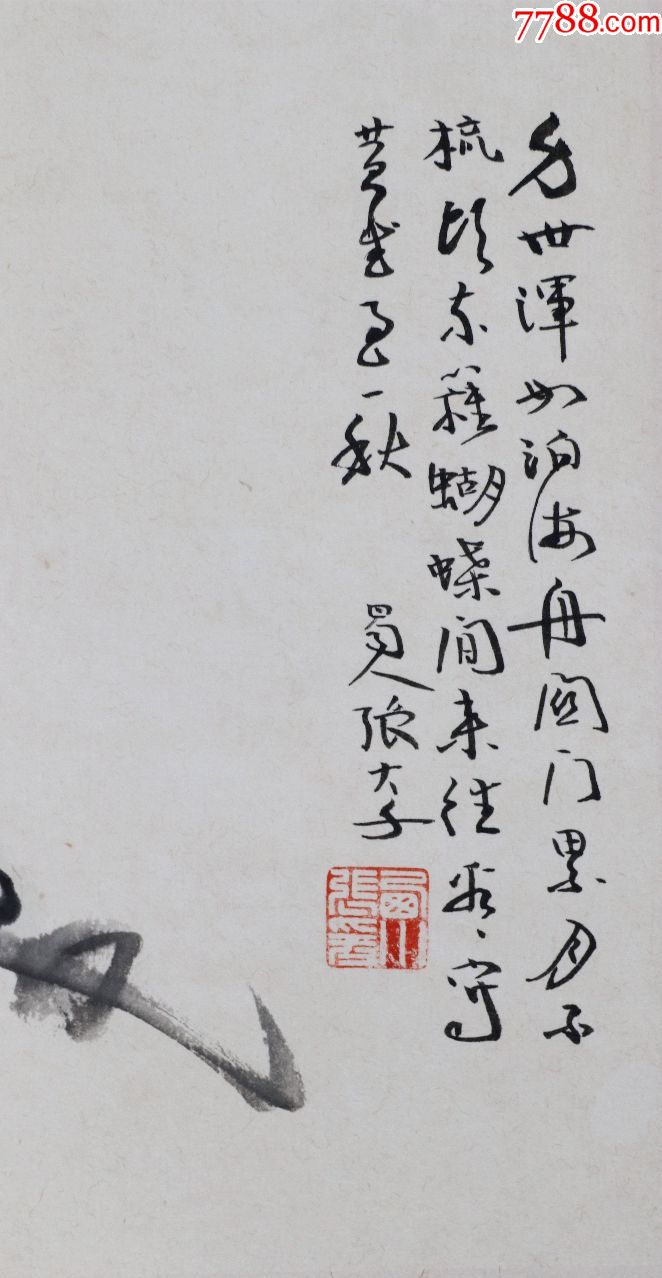 7788.com
身世渾如泊海舟關门累月不
梳頭東籬蝴蝶閒来往看〻寫
黄花過一秋
蜀人張大千